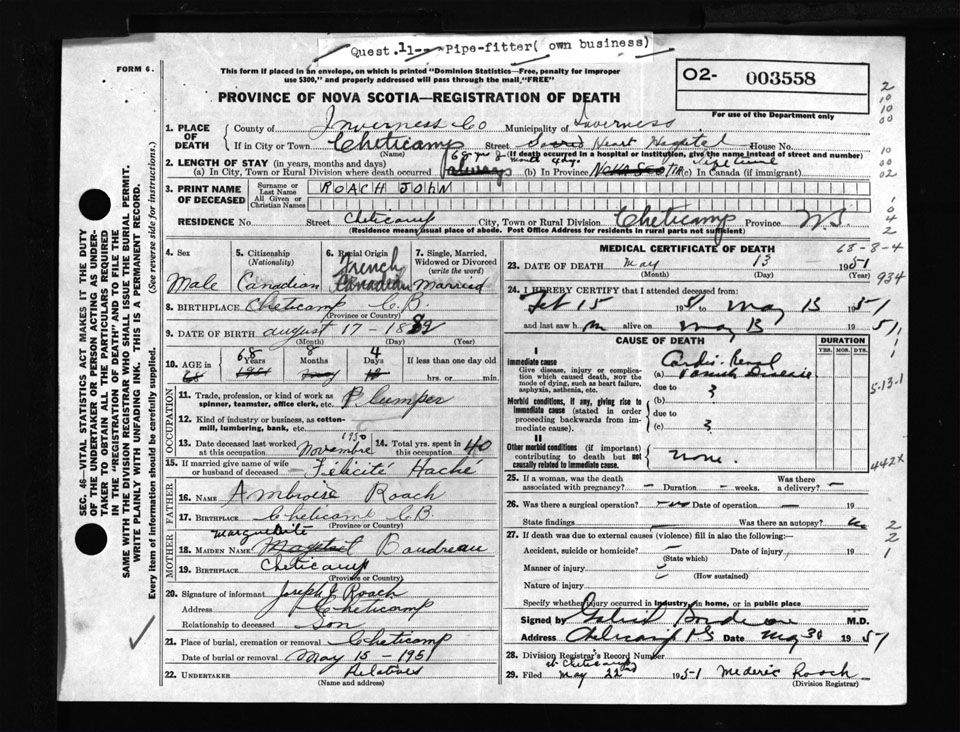 Quest. 11-- Pipe-fitter( own business)
FORM 6.
This form if placed in an envelope, on which is printed "Dominion Statistics—Free, penalty for improper
use $300," and properly addressed will pass through the mail "FREE"
O2- 003558
PROVINCE OF NOVA SCOTIA—REGISTRATION OF DEATH
For use of the Department only
1. PLACE OF DEATH
County of Inverness Co Municipality of Inverness
If in City or Town Cheticamp Street Sacred Heart Hospital House No.
(Name) (If death occurred in a hospital or institution, give the name instead of street and number)
2. LENGTH OF STAY (in years, months and days)
(a) In City, Town or Rural Division where death occurred always (b) In Province Nova Scotia (c) In Canada (if immigrant)
3. PRINT NAME OF DECEASED
Surname or Last Name
All Given or Christian Names
ROACH JOHN
RESIDENCE No. Street Cheticamp City, Town or Rural Division Cheticamp Province N.S.
(Residence means usual place of abode. Post Office Address for residents in rural parts not sufficient)
4. Sex
Male
5. Citizenship
(Nationality)
Canadian
6. Racial Origin
French
Canadian
7. Single, Married, Widowed or Divorced
(write the word)
Married
8. BIRTHPLACE Cheticamp C.B.
(Province or Country)
9. DATE OF BIRTH august 17 - 1882
(Month) (Day) (Year)
10. AGE in
68 Years 8 Months 4 Days
If less than one day old
hrs. or min.
OCCUPATION
11. Trade, profession, or kind of work as
spinner, teamster, office clerk, etc. Plumper
12. Kind of industry or business, as cotton-
mill, lumbering, bank, etc.
13. Date deceased last worked
at this occupation Novembre 1950
14. Total yrs. spent in
this occupation 40
15. If married give name of wife
or husband of deceased Félicité Haché
FATHER
16. NAME Ambroise Roach
17. BIRTHPLACE Cheticamp C.B.
(Province or Country)
MOTHER
Marguerite
18. MAIDEN NAME Boudreau
19. BIRTHPLACE Cheticamp
(Province or Country)
20. Signature of informant Joseph J Roach
Address Cheticamp
Relationship to deceased Son
21. Place of burial, cremation or removal Cheticamp
Date of burial or removal May 15 - 1951
22. UNDERTAKER Relatives
(Name and address)
SEC. 46—VITAL STATISTICS ACT MAKES IT THE DUTY
OF THE UNDERTAKER OR PERSON ACTING AS UNDER-
TAKER TO OBTAIN ALL THE PARTICULARS REQUIRED
IN THE "REGISTRATION OF DEATH" AND TO FILE THE
SAME WITH THE DIVISION REGISTRAR WHO SHALL ISSUE THE BURIAL PERMIT.
WRITE PLAINLY WITH UNFADING INK. THIS IS A PERMANENT RECORD.
Every item of information should be carefully supplied. (See reverse side for instructions.)
MEDICAL CERTIFICATE OF DEATH
68-8-4
23. DATE OF DEATH May 13 1951
(Month) (Day)
934
24. I HEREBY CERTIFY that I attended deceased from:
Feb 15 1951 to May 13 1951
and last saw h m alive on May 13 1951
CAUSE OF DEATH
DURATION
YRS. MOS. DYS.
I
Immediate cause
Give disease, injury or complica-
tion which caused death, not the
mode of dying, such as heart failure,
asphyxia, asthenia, etc.
(a) Cardio-Renal
due to
Morbid conditions, if any, giving rise to
immediate cause (stated in order
proceeding backwards from im-
mediate cause).
(b)
due to
(c)
II
Other morbid conditions (if important)
contributing to death but not
causally related to immediate cause.
none.
5-13-1
442X
25. If a woman, was the death
associated with pregnancy? — Duration — weeks. Was there
a delivery? —
26. Was there a surgical operation? no Date of operation — 19
State findings — Was there an autopsy? no
27. If death was due to external causes (violence) fill in also the following:—
Accident, suicide or homicide? — Date of injury 19
(State which)
Manner of injury
(How sustained)
Nature of injury
Specify whether injury occurred in industry, in home, or in public place
Signed by Gabriel Boudreau M.D.
Address Cheticamp NS Date May 30 1951
28. Division Registrar's Record Number
at Cheticamp
29. Filed May 22nd 1951 Mederic Roach
(Division Registrar)